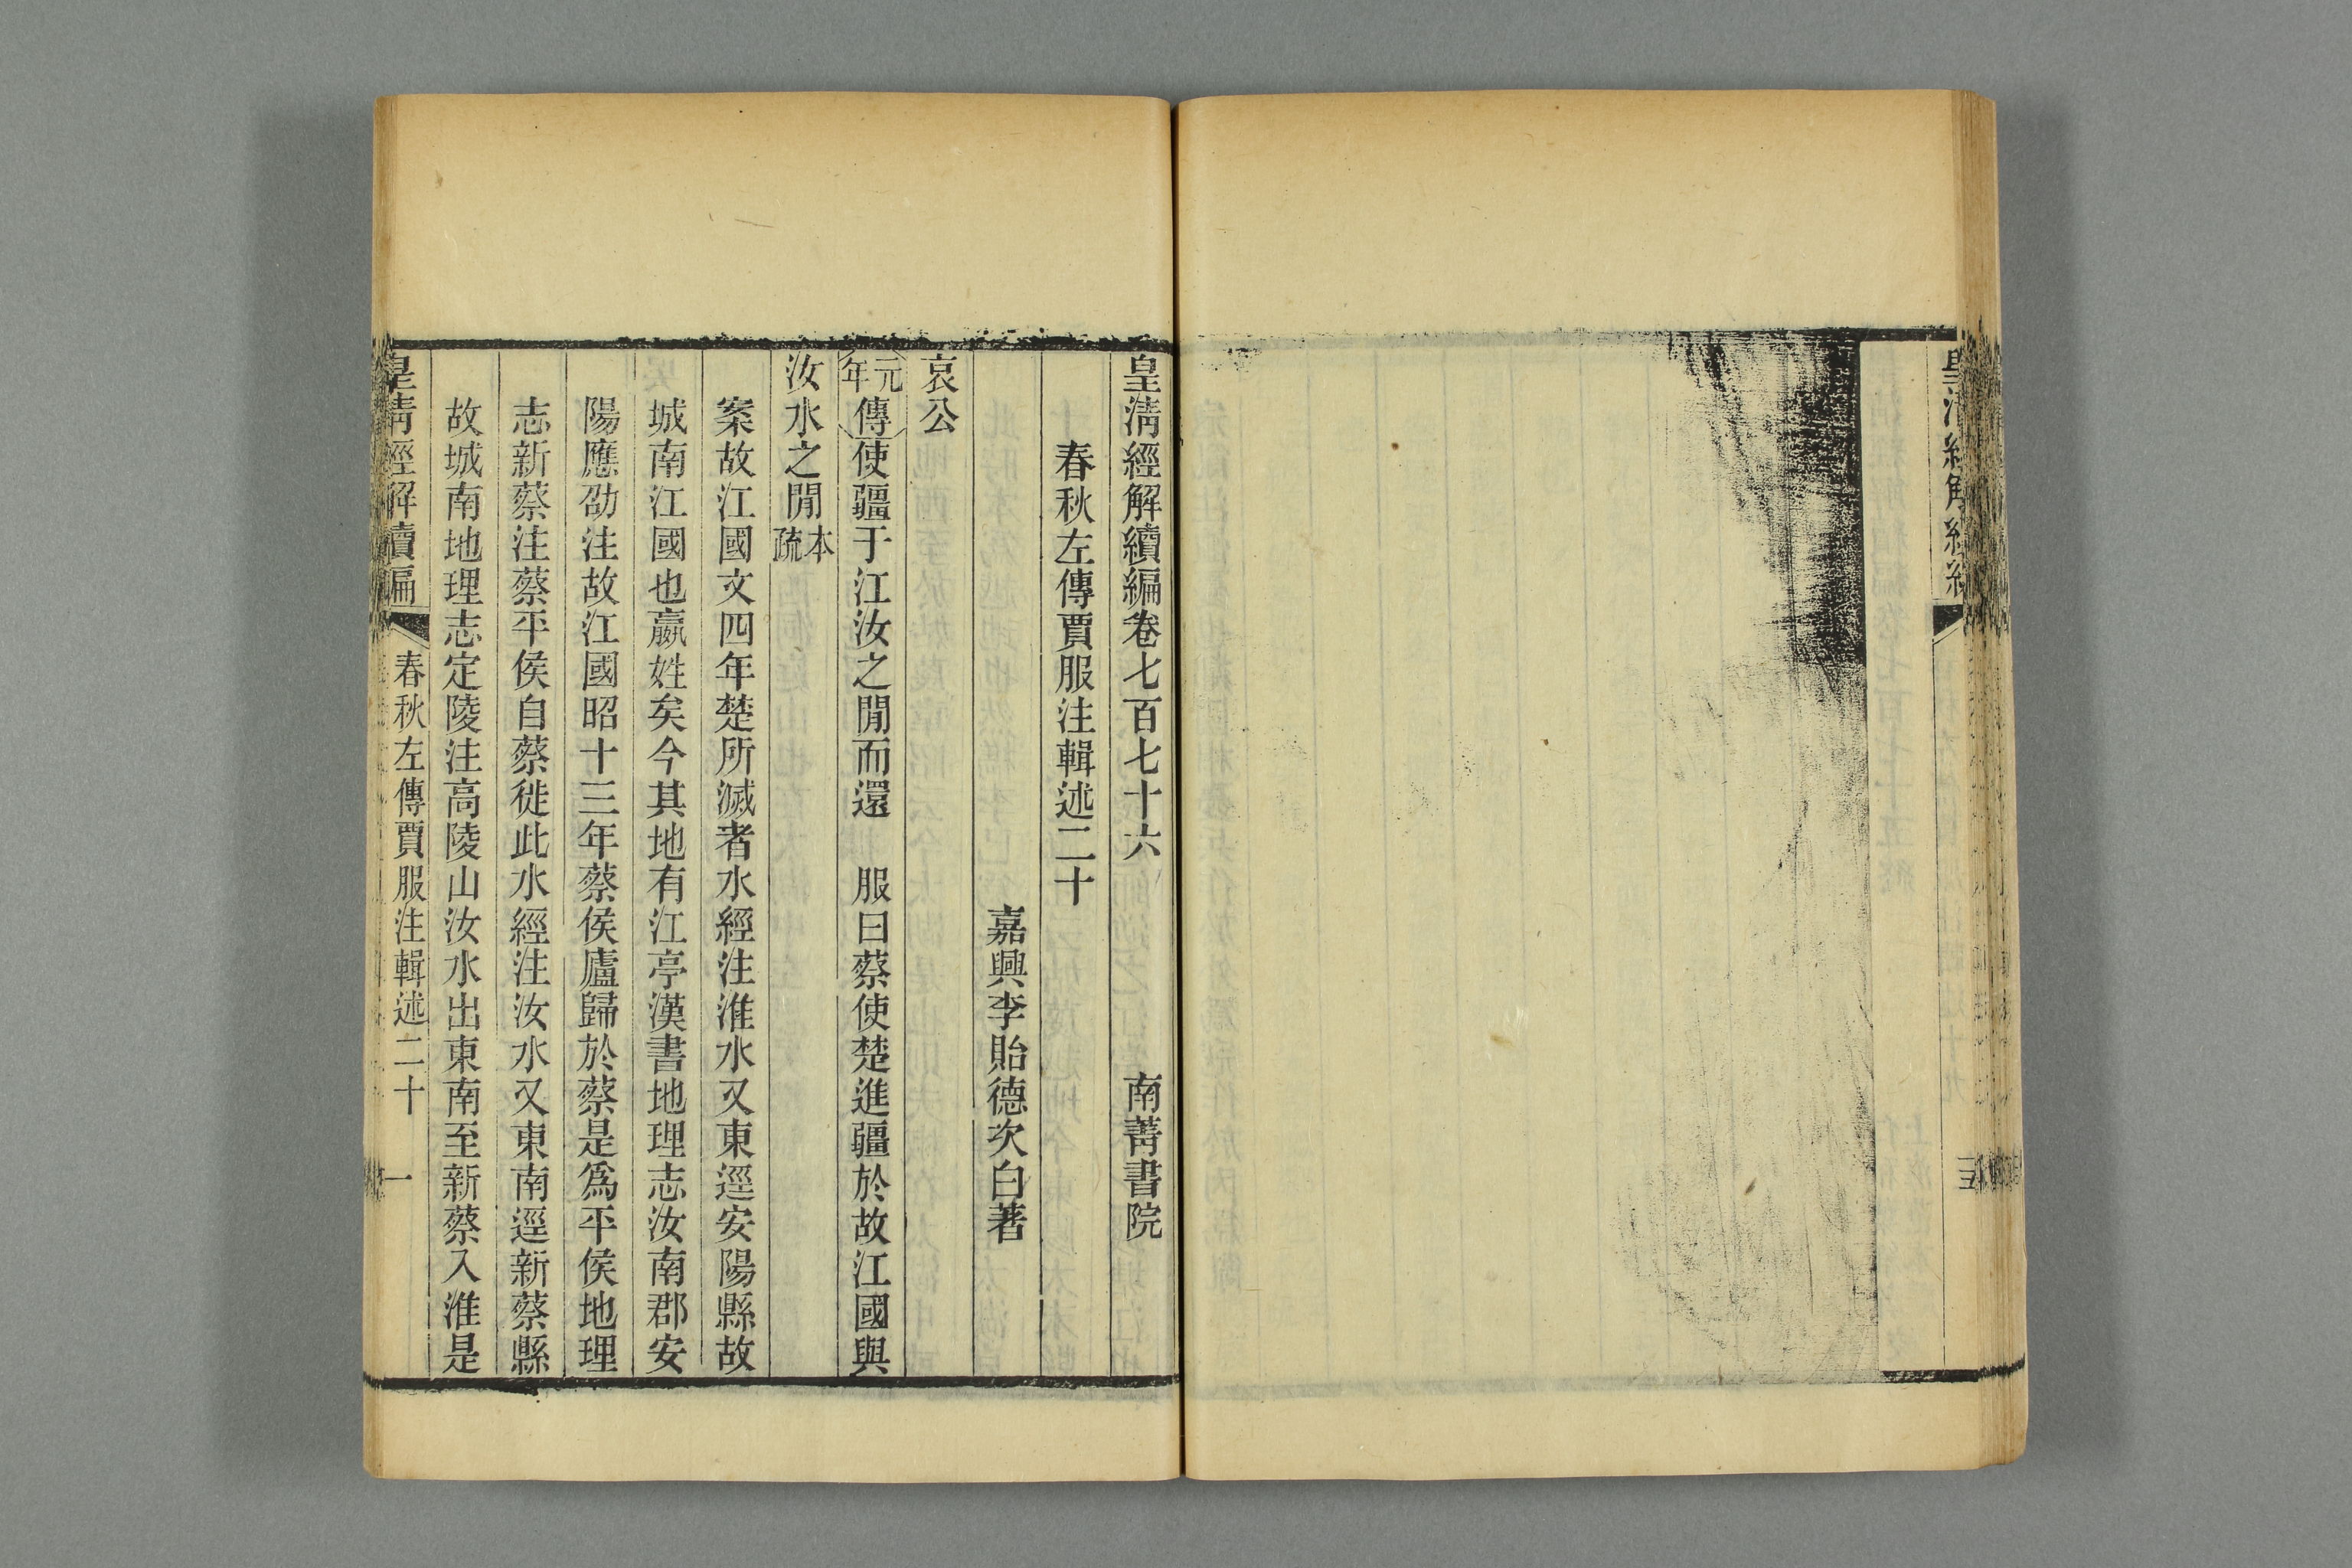 皇清經解續編卷七百七十六 南菁書院
春秋左傳賈服注輯述二十
嘉興李貽德次白著
哀公
元年傳使疆于江汝之閒而還 服曰蔡使楚進疆於故江國與
汝水之閒本疏
案故江國文四年楚所滅者水經注淮水又東逕安陽縣故
城南江國也嬴姓矣今其地有江亭漢書地理志汝南郡安
陽應劭注故江國昭十三年蔡侯廬歸於蔡是爲平侯地理
志新蔡注蔡平侯自蔡徙此水經注汝水又東南逕新蔡縣
故城南地理志定陵注高陵山汝水出東南至新蔡入淮是
皇清經解續編 春秋左傳賈服注輯述二十 一